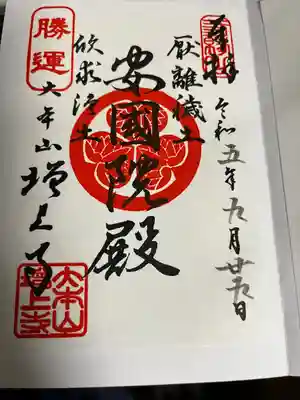 奉拝
令和五年九月廿九日
厭離穢土
安國院殿
欣求浄土
勝運
大本山
増上寺
大本山
増上寺